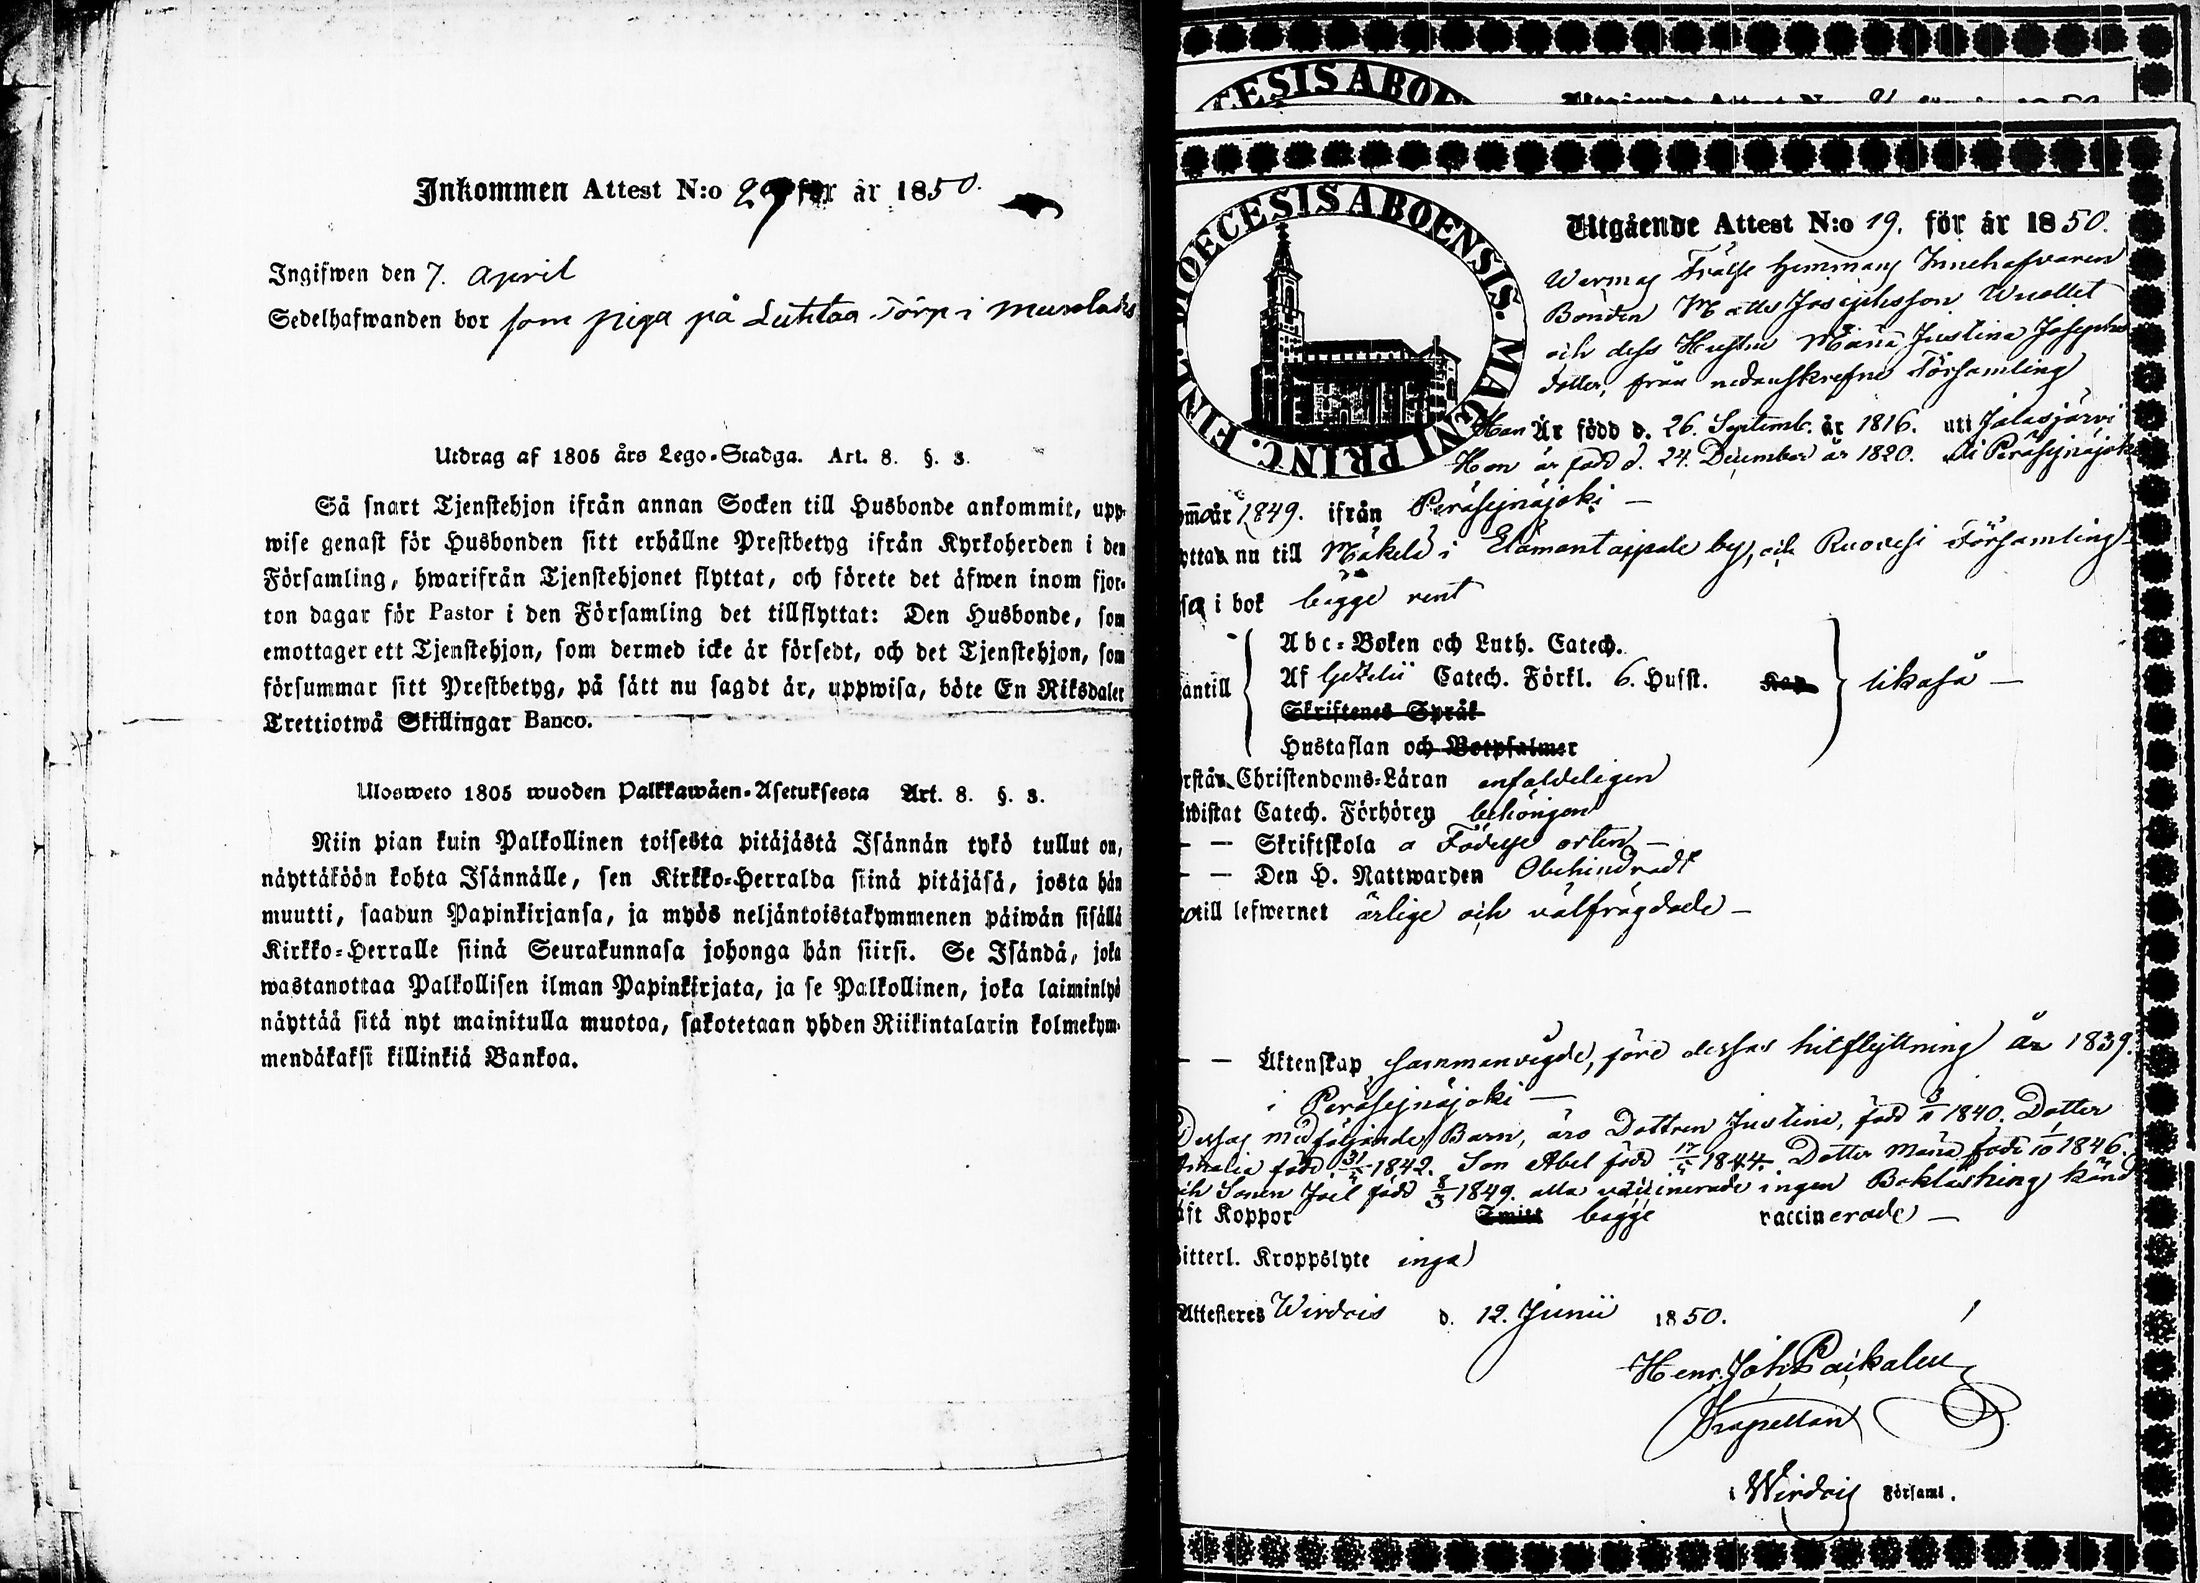 Inkommen Attest N:o 29 för år 1850.
Ingifwen den 7. April
Sedelhafwanden bor som piga på Luhtaa Torp i
Utdrag af 1805 års Lego-Stadga. Art. 8. §. 3.
Så snart Tjenstehjon ifrån annan Socken till Husbonde ankommit, upp-
wise genast för Husbonden sitt erhållne Prestbetyg ifrån Kyrkoherden i den
Församling, hwarifrån Tjenstehjonet flyttat, och förete det äfwen inom fjor-
ton dagar för Pastor i den Församling det tillflyttat: Den Husbonde, som
emottager ett Tjenstehjon, som dermed icke är försedt, och det Tjenstehjon, som
försummar sitt Prestbetyg, på sätt nu sagdt är, uppwisa, böte En Riksdaler
Trettiotwå Skillingar Banco.
Ulosweto 1805 wuoden Palkkawäen-Asetuksesta Art. 8. §. 3.
Niin pian kuin Palkollinen toisesta pitäjästä Isännän tykö tullut on,
näyttäköön kohta Isännälle, sen Kirkko-Herralda siinä pitäjäsä, josta hän
muutti, saadun Papinkirjansa, ja myös neljäntoistakymmenen päiwän sisällä
Kirkko-Herralle siinä Seurakunnasa johonga hän siirsi. Se Isändä, joka
wastanottaa Palkollisen ilman Papinkirjata, ja se Palkollinen, joka laiminlyö
näyttää sitä nyt mainitulla muotoa, sakotetaan yhden Riikintalarin kolmekym-
mendäkaksi killinkiä Bankoa.
CESIS ABOE
DIOECESIS ABOENSIS. MAGNI PRINC. FINL.
Utgående Attest N:o 19. för år 1850.
Frälse Hemmans Innehafvaren
Bonden Matts Josephsson Wuollet
och dess Hustru Maria Justina Josephs
dotter, från nedanskrefne Församling
Han Är född d. 26. Septemb. år 1816. uti Jalasjärvi
Hon är född d. 24. December år 1820. uti Peräsejnäjoki
år 1849. ifrån Peräsejnäjoki —
yttar nu till Mäkelä i Elämäntaipale by, och Ruovesi Församling
i bok bägge rent
Abc-Boken och Luth. Catech.
antill Af Gezelii Catech. Förkl. 6. Husst. likaså —
Skriftenes Språk
Hustaflan och Botpsalmer
rstår Christendoms-Läran enfaldeligen
iwistat Catech. Förhören behörigen
— — Skriftskola å Födelse orten —
— — Den H. Nattwarden Obehindradt
till lefwernet ärlige och välfrägdade —
— — Äktenskap sammanvigde, före dessas hitflyttning år 1839.
i Peräsejnäjoki —
Dessas medföljande Barn, äro Dottren Justina, född 3/11 1840. Dotter
Amalia född 31/5 1842. Son Abel född 17/5 1844. Dotter Maria född 1/10 1846.
och Sonen Joel född 8/3 1849. alla vaccinerade ingen Bokläsning känd
aft Koppor bägge vaccinerade —
Sitterl. Kroppslyte inga
Attesteres Wirdois d. 12. Junii 1850.
Henr. Joh. Paikalen
Kapellan
i Wirdois Församl.